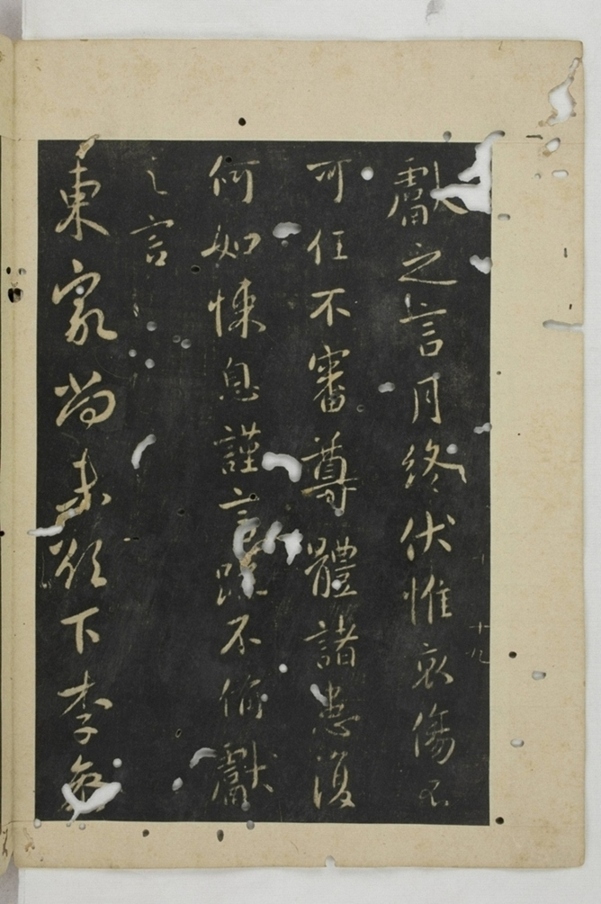 獻之言月終伏惟哀傷不
可任不審尊體諸患復
何如悚息謹言疏不備獻
之言
東家尚未頒下李參
十九